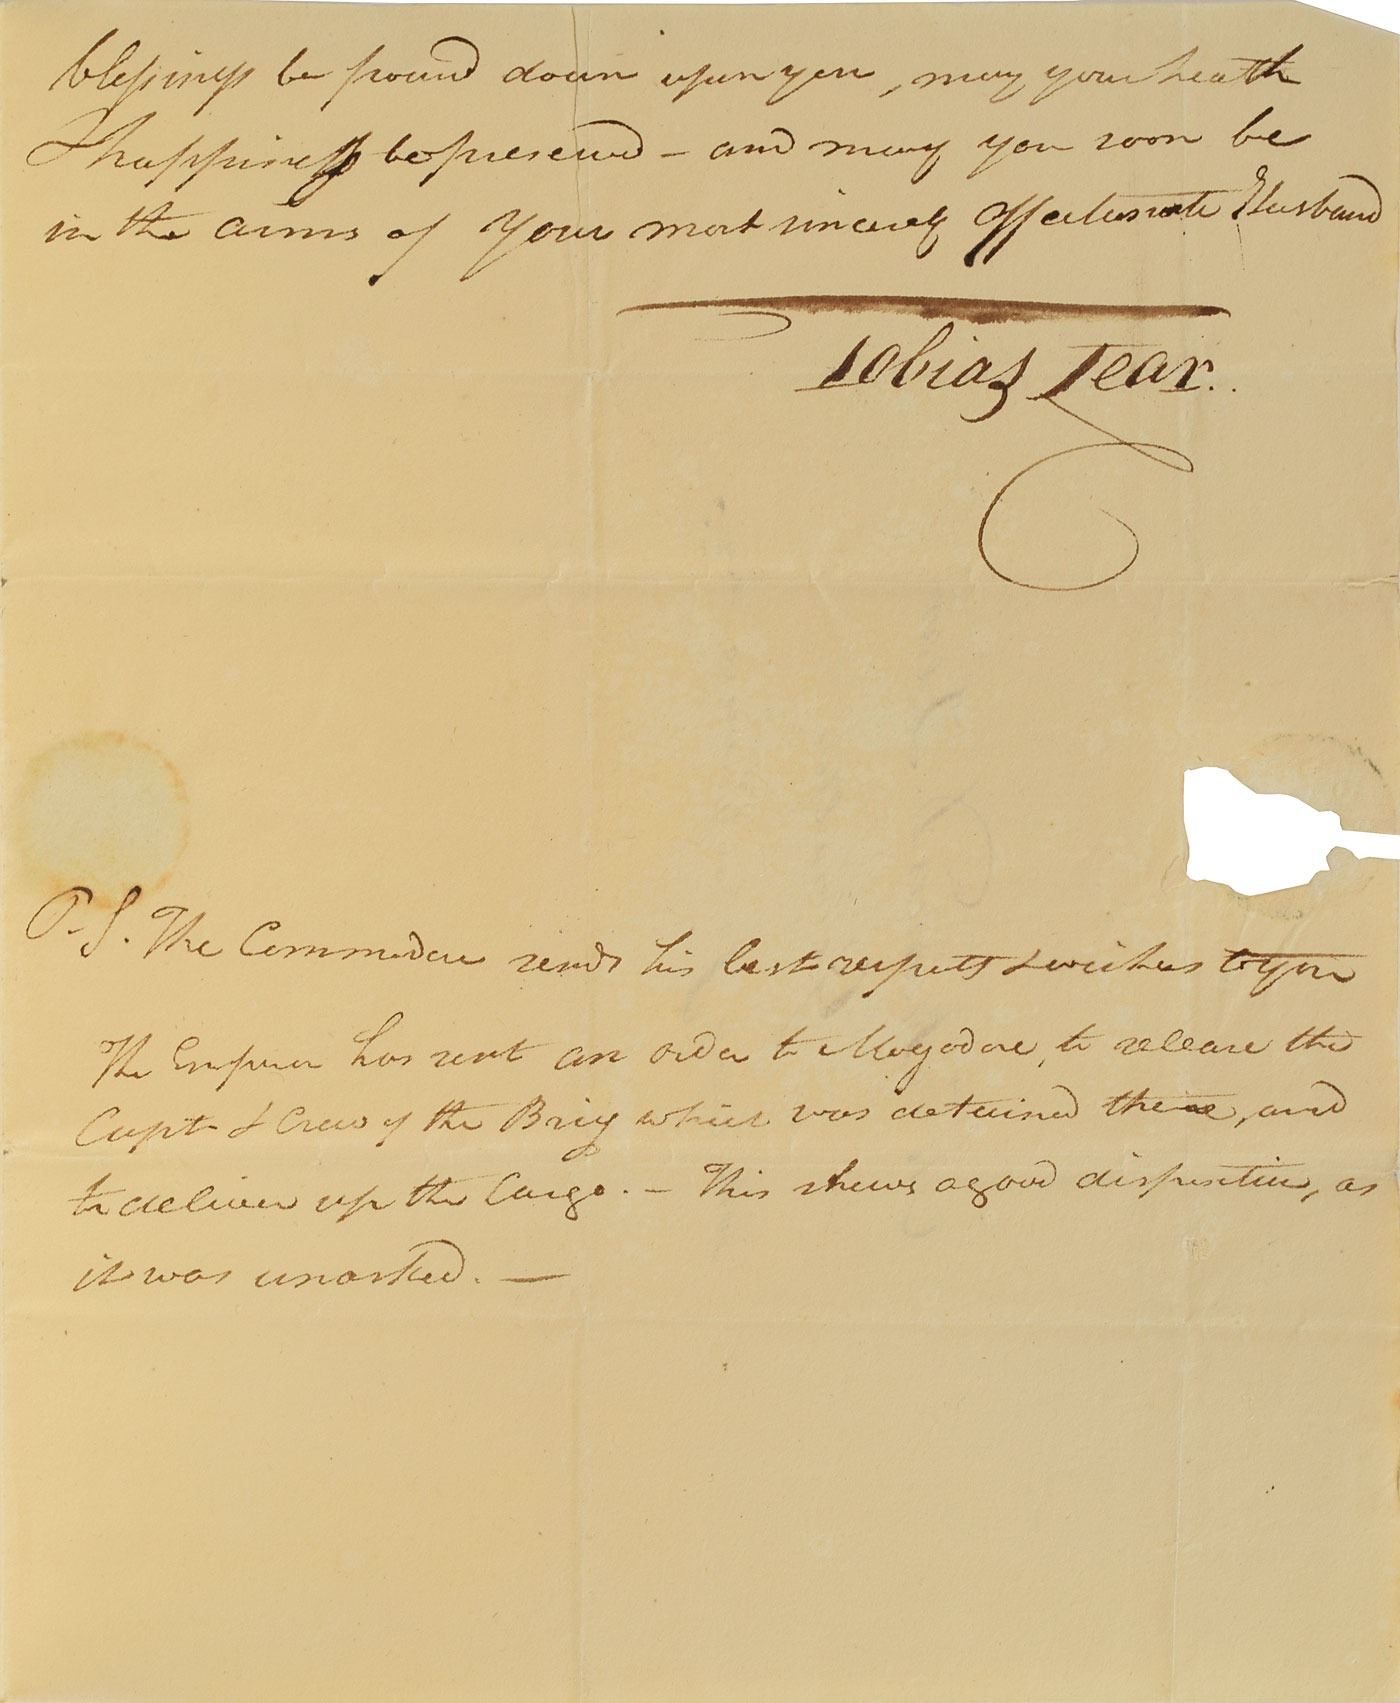 blessings be pourd down upon you, may your heath
& happiness be preserved – and may you soon be
in the arms of Your most sincerely affectionate Husband
Tobias Lear.
P.S. The Commodore sends his best respects & wishes to you
The Emperor has sent an order to Mogadore, to release the
Capt & Crew of the Brig which was detained there, and
to deliver up the Cargo. – This shews a good disposition, as
it was unasked. —